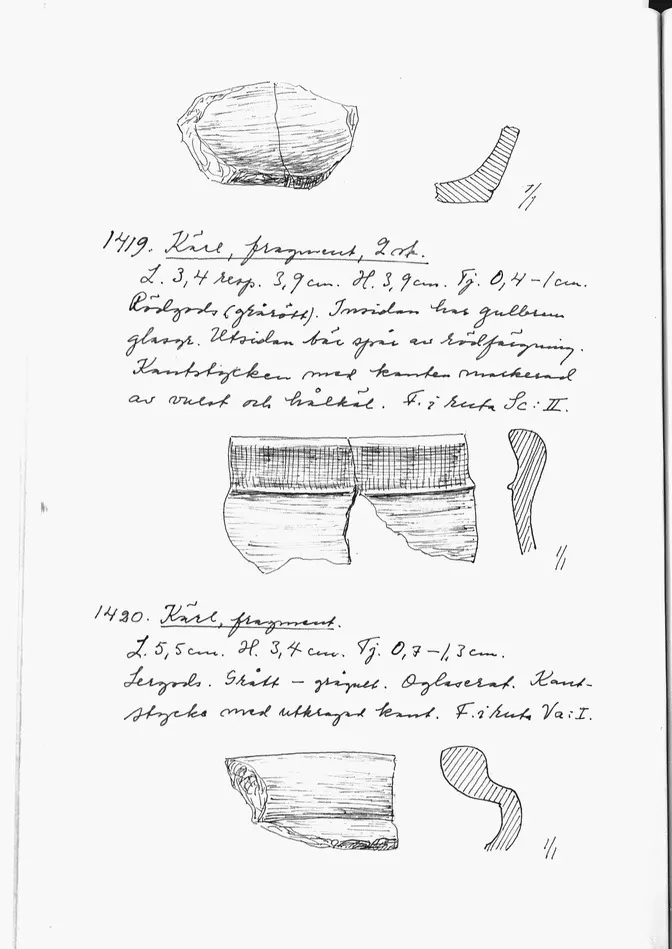 1/1
1419. Kärl, fragment, 2 st.
L. 3,4 resp. 3,9 cm. H. 3,9 cm. Tj. 0,4-1 cm.
Rödgods (grårött). Insidan har gulbrun
glasyr. Utsidan bär spår av rödfärgning.
Kantstycken med kanten markerad
av vulst och hålkäl. F. i ruta Sc: II.
1/1
1420. Kärl, fragment.
L. 5,5 cm. H. 3,4 cm. Tj. 0,7-1,3 cm.
Lergods. Grått - grågult. Oglaserat. Kant-
stycke med utkragad kant. F. i ruta Va: I.
1/1